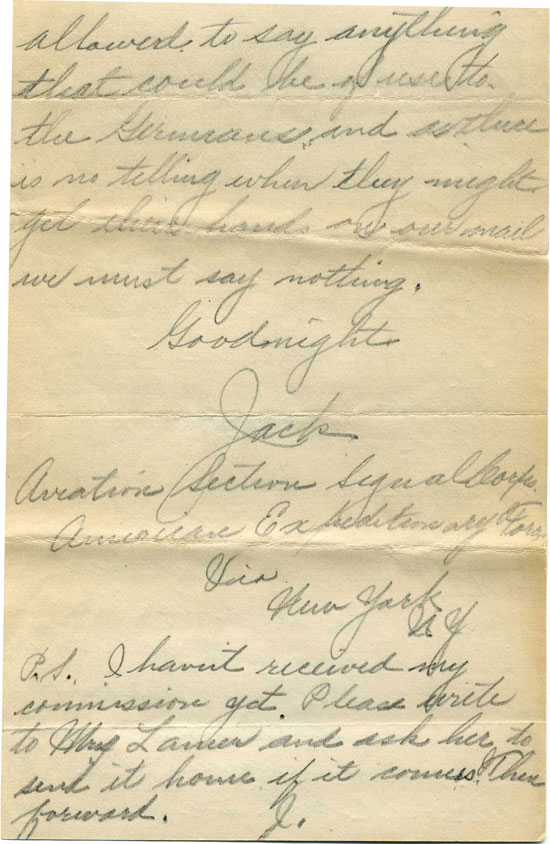 allowed to say anything
that could be of use to
the Germans, and as there
is no telling when they might
get their hands on our mail
we must say nothing.
Goodnight
Jack
Aviation Section Signal Corps.
American Expeditionary Forc
Via
New York
N.Y
P.S. I havn't received my
commission yet. Please write
to Mrs Lanier and ask her to
send it home if it comes. Then
forward. J.